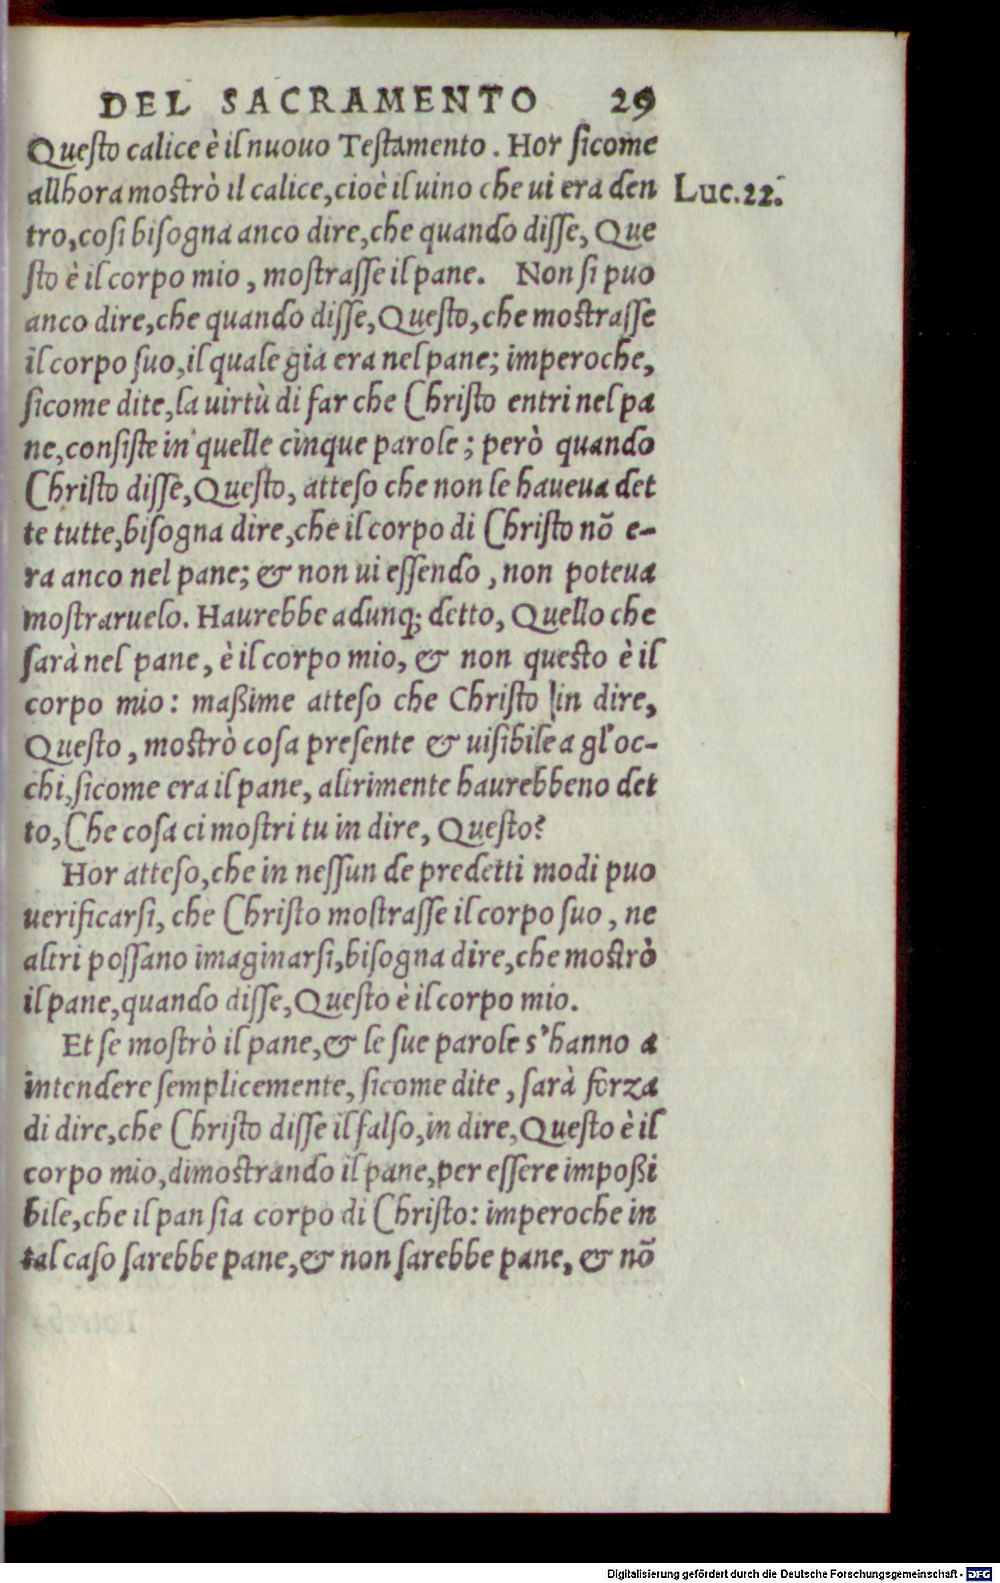 DEL SACRAMENTO 29
Questo calice è il nuouo Testamento. Hor sicome
allhora mostrò il calice, cioè il uino che ui era den
Luc.22.
tro, cosi bisogna anco dire, che quando disse, Que
sto è il corpo mio, mostrasse il pane. Non si puo
anco dire, che quando disse, Questo, che mostrasse
il corpo suo, il quale gia era nel pane; imperoche,
sicome dite, la uirtù di far che Christo entri nel pa
ne, consiste in quelle cinque parole; però quando
Christo disse, Questo, atteso che non le haueua det
te tutte, bisogna dire, che il corpo di Christo nõ e-
ra anco nel pane; & non ui essendo, non poteua
mostraruelo. Haurebbe adunq; detto, Quello che
sarà nel pane, è il corpo mio, & non questo è il
corpo mio: maßime atteso che Christo in dire,
Questo, mostrò cosa presente & uisibile a gl'oc-
chi, sicome era il pane, altrimente haurebbeno det
to, Che cosa ci mostri tu in dire, Questo?
Hor atteso, che in nessun de predetti modi puo
uerificarsi, che Christo mostrasse il corpo suo, ne
altri possano imaginarsi, bisogna dire, che mostrò
il pane, quando disse, Questo è il corpo mio.
Et se mostrò il pane, & le sue parole s'hanno a
intendere semplicemente, sicome dite, sarà forza
di dire, che Christo disse il falso, in dire, Questo è il
corpo mio, dimostrando il pane, per essere impoßi
bile, che il pan sia corpo di Christo: imperoche in
tal caso sarebbe pane, & non sarebbe pane, & nõ
Digitalisierung gefördert durch die Deutsche Forschungsgemeinschaft - DFG